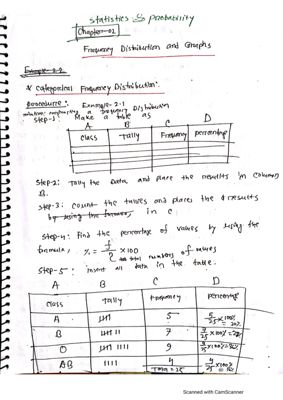 statistics & probability
Chapter-02
Frequency Distribution and Graphs
Example-2-2
* Categorical Frequency Distribution:
Procedures: Example-2-1
constructing a Frequency Distribution
Step-1: Make a table as
A B C D
Class Tally Frequency percentage
Step-2: Tally the data and place the results in column
B.
Step-3: Count the tallies and place the results
in C.
Step-4: Find the percentage of values by using the
formula, % = f/n × 100
n = total numbers of values
Step-5: insert all data in the table.
A B C D
class Tally frequency percentage
A 5 5/25 × 100% = 20%
B 7 7/25 × 100% = 28%
O 9 9/25 × 100% = 36%
AB IIII 4 4/25 × 100% = 16%
Total = 25
Scanned with CamScanner